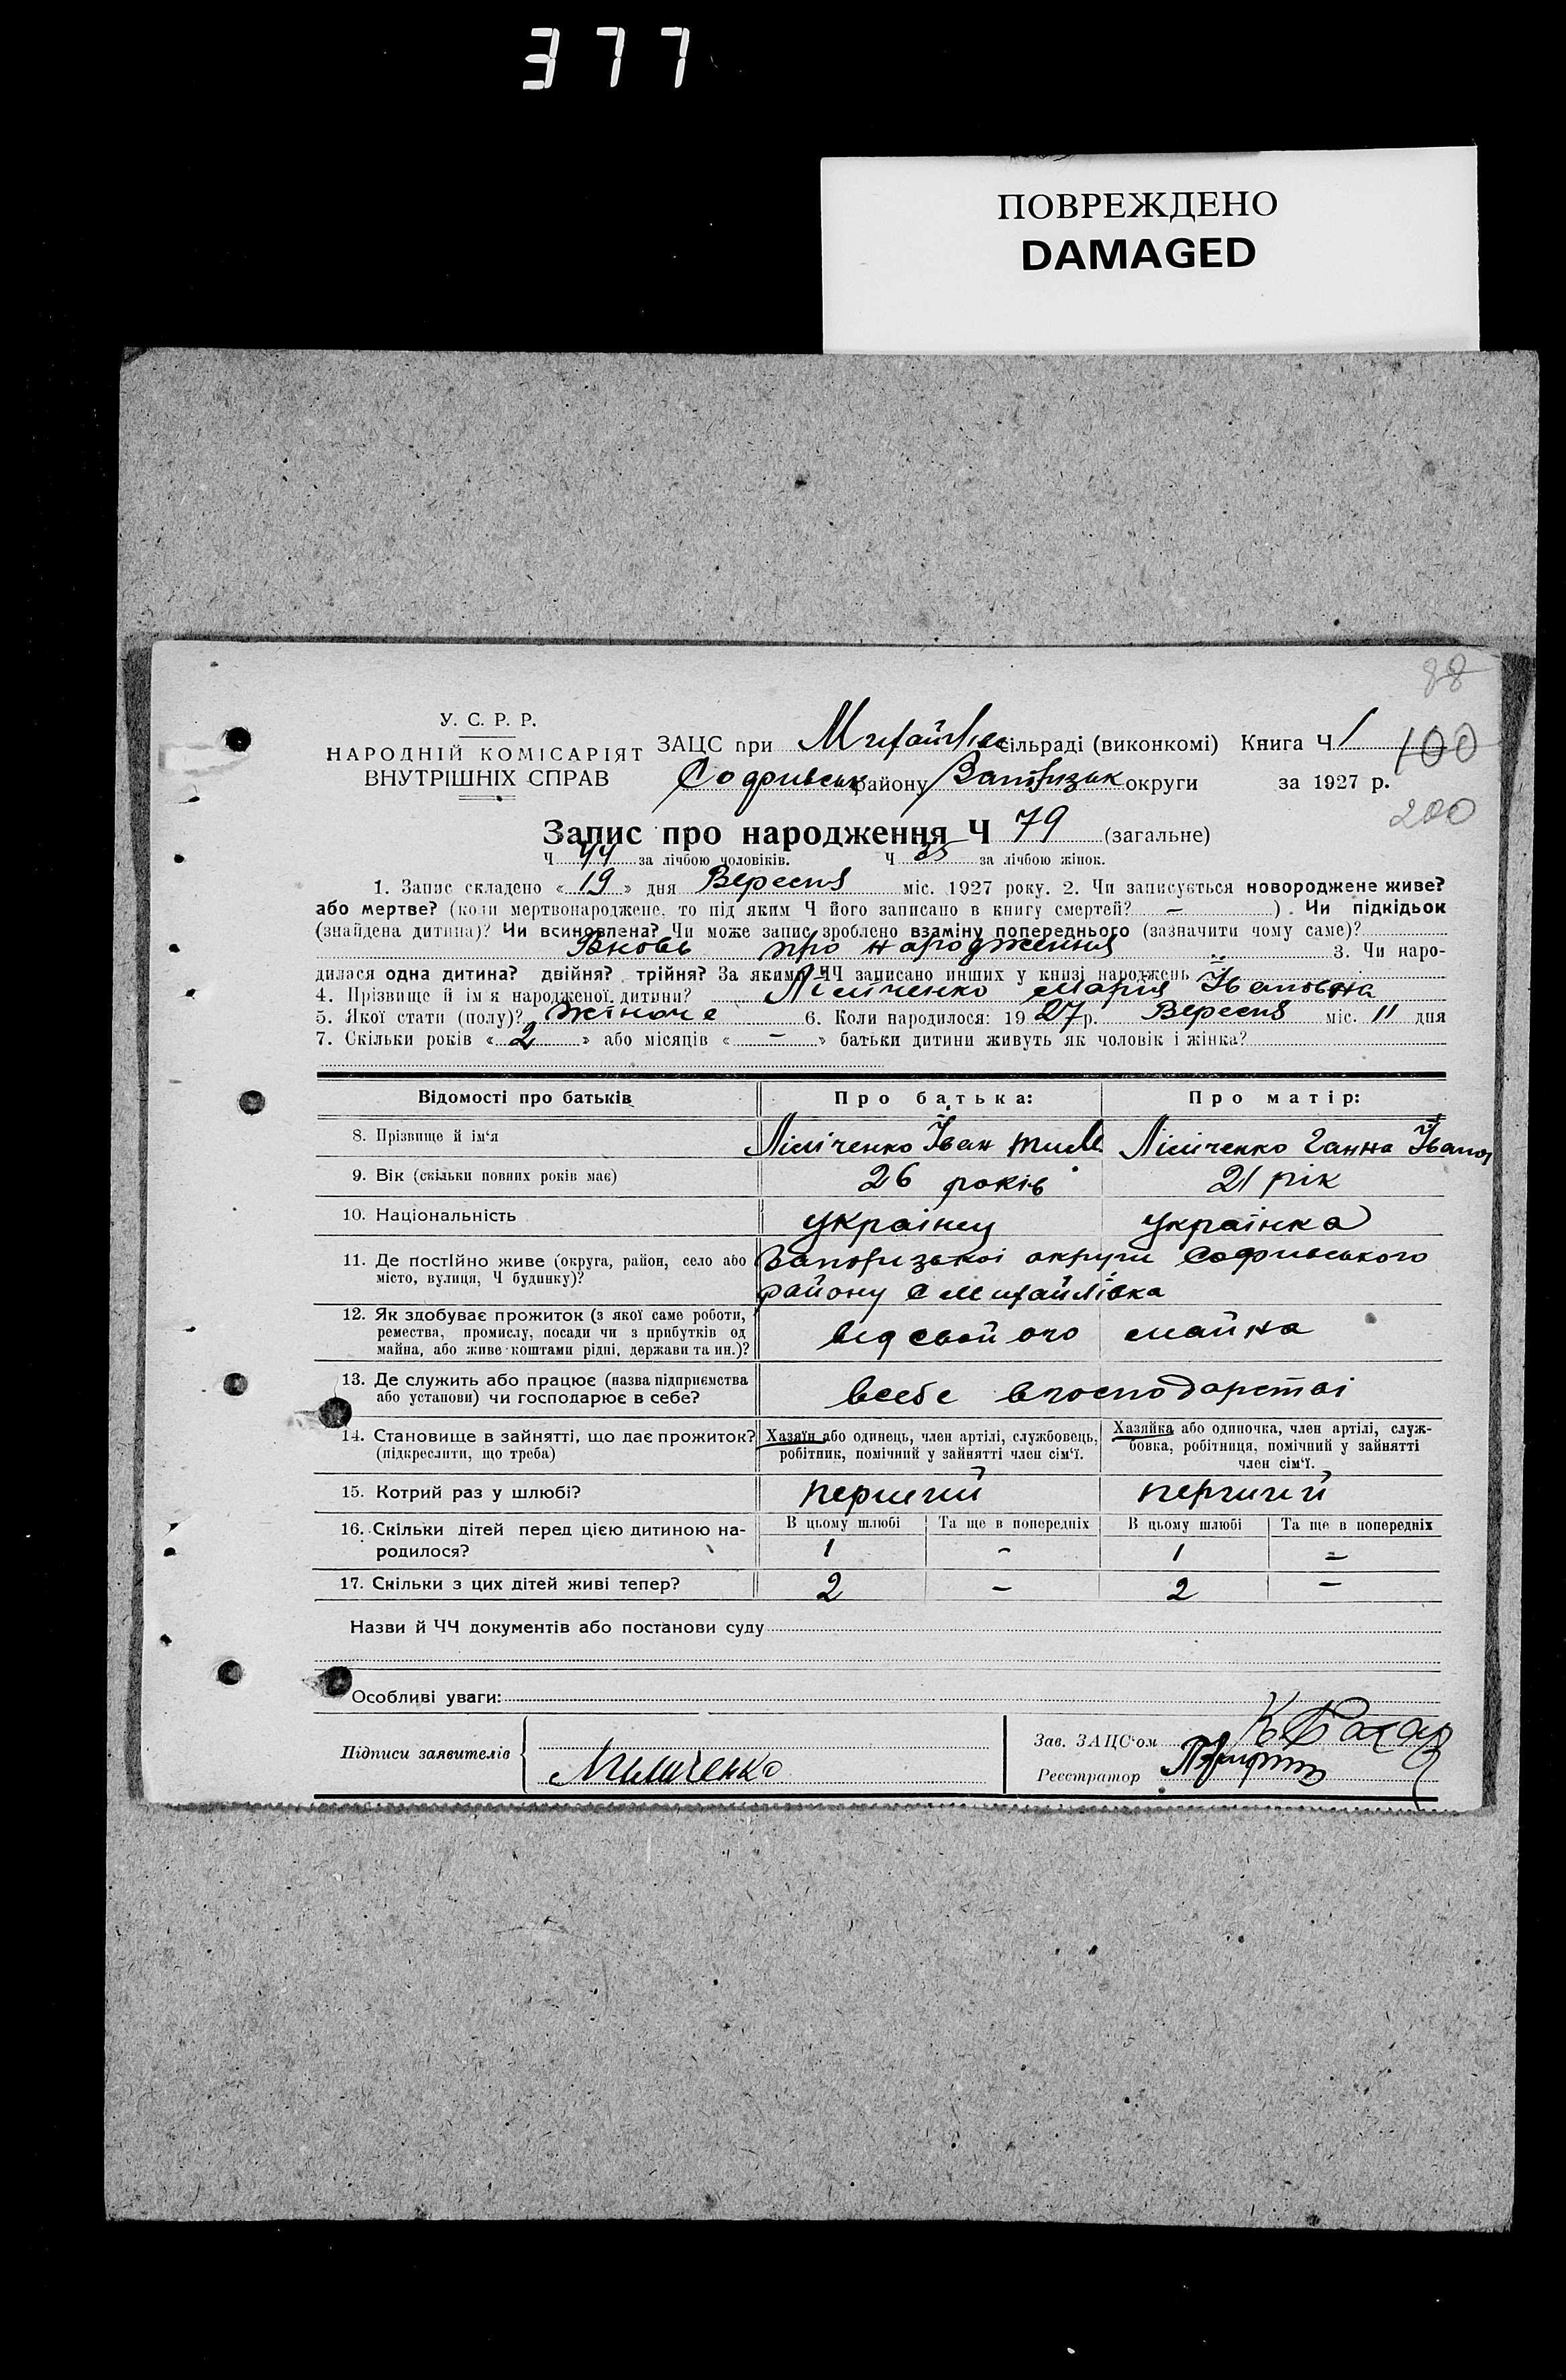 377
ПОВРЕЖДЕНО
DAMAGED
88
У. С. Р. Р.
НАРОДНІЙ КОМІСАРІЯТ
ВНУТРІШНІХ СПРАВ
ЗАЦС при Михайлів сільраді (виконкомі) Книга Ч 1
100
району округи за 1927 р.
200
Запис про народження Ч 79 (загальне)
Ч 44 за лічбою чоловіків. Ч 35 за лічбою жінок.
1. Запис складено « 19 » дня Вересня міс. 1927 року. 2. Чи записується новороджене живе?
або мертве? (коли мертвонароджене, то під яким Ч його записано в книгу смертей? – ) . Чи підкідьок
(знайдена дитина)? Чи всиновлена? Чи може запис зроблено взаміну попереднього (зазначити чому саме)?
Вновь про народження 3. Чи наро-
дилася одна дитина? двійня? трійня? За якими ЧЧ записано инших у книзі народжень =
4. Прізвище й ім'я народженої дитини? Мария Івановна
5. Якої стати (полу)? жіноче 6. Коли народилося: 19 27 р. Вересня міс. 11 дня
7. Скільки років « 2 » або місяців « – » батьки дитини живуть як чоловік і жінка?
Відомості про батьків
Про батька:
Про матір:
8. Прізвище й ім‘я
Іван
Ганна
9. Вік (скільки повних років має)
26 років
21 рік
10. Національність
украінец
украінка
11. Де постійно живе (округа, район, село або
місто, вулиця, Ч будинку)?
Запоризькоі округи Софиивського
району с Михайлівка
12. Як здобуває прожиток (з якої саме роботи,
ремества, промислу, посади чи з прибутків од
майна, або живе коштами рідні, держави та ин.)?
від свойого майна
13. Де служить або працює (назва підприємства
або установи) чи господарює в себе?
всебе вгосподарстві
14. Становище в зайнятті, що дає прожиток?
(підкреслити, що треба)
Хазяїн або одинець, член артілі, службовець,
робітник, помічний у зайнятті член сім‘ї.
Хазяйка або одиночка, член артілі, служ-
бовка, робітниця, помічний у зайнятті
член сім‘ї.
15. Котрий раз у шлюбі?
первий
первий
16. Скільки дітей перед цією дитиною на-
родилося?
В цьому шлюбі
Та ще в попередніх
В цьому шлюбі
Та ще в попередніх
1 – 1 =
17. Скільки з цих дітей живі тепер?
2 – 2 –
Назви й ЧЧ документів або постанови суду
Особливі уваги:
Підписи заявителів
Зав. ЗАЦС‘ом
Реєстратор